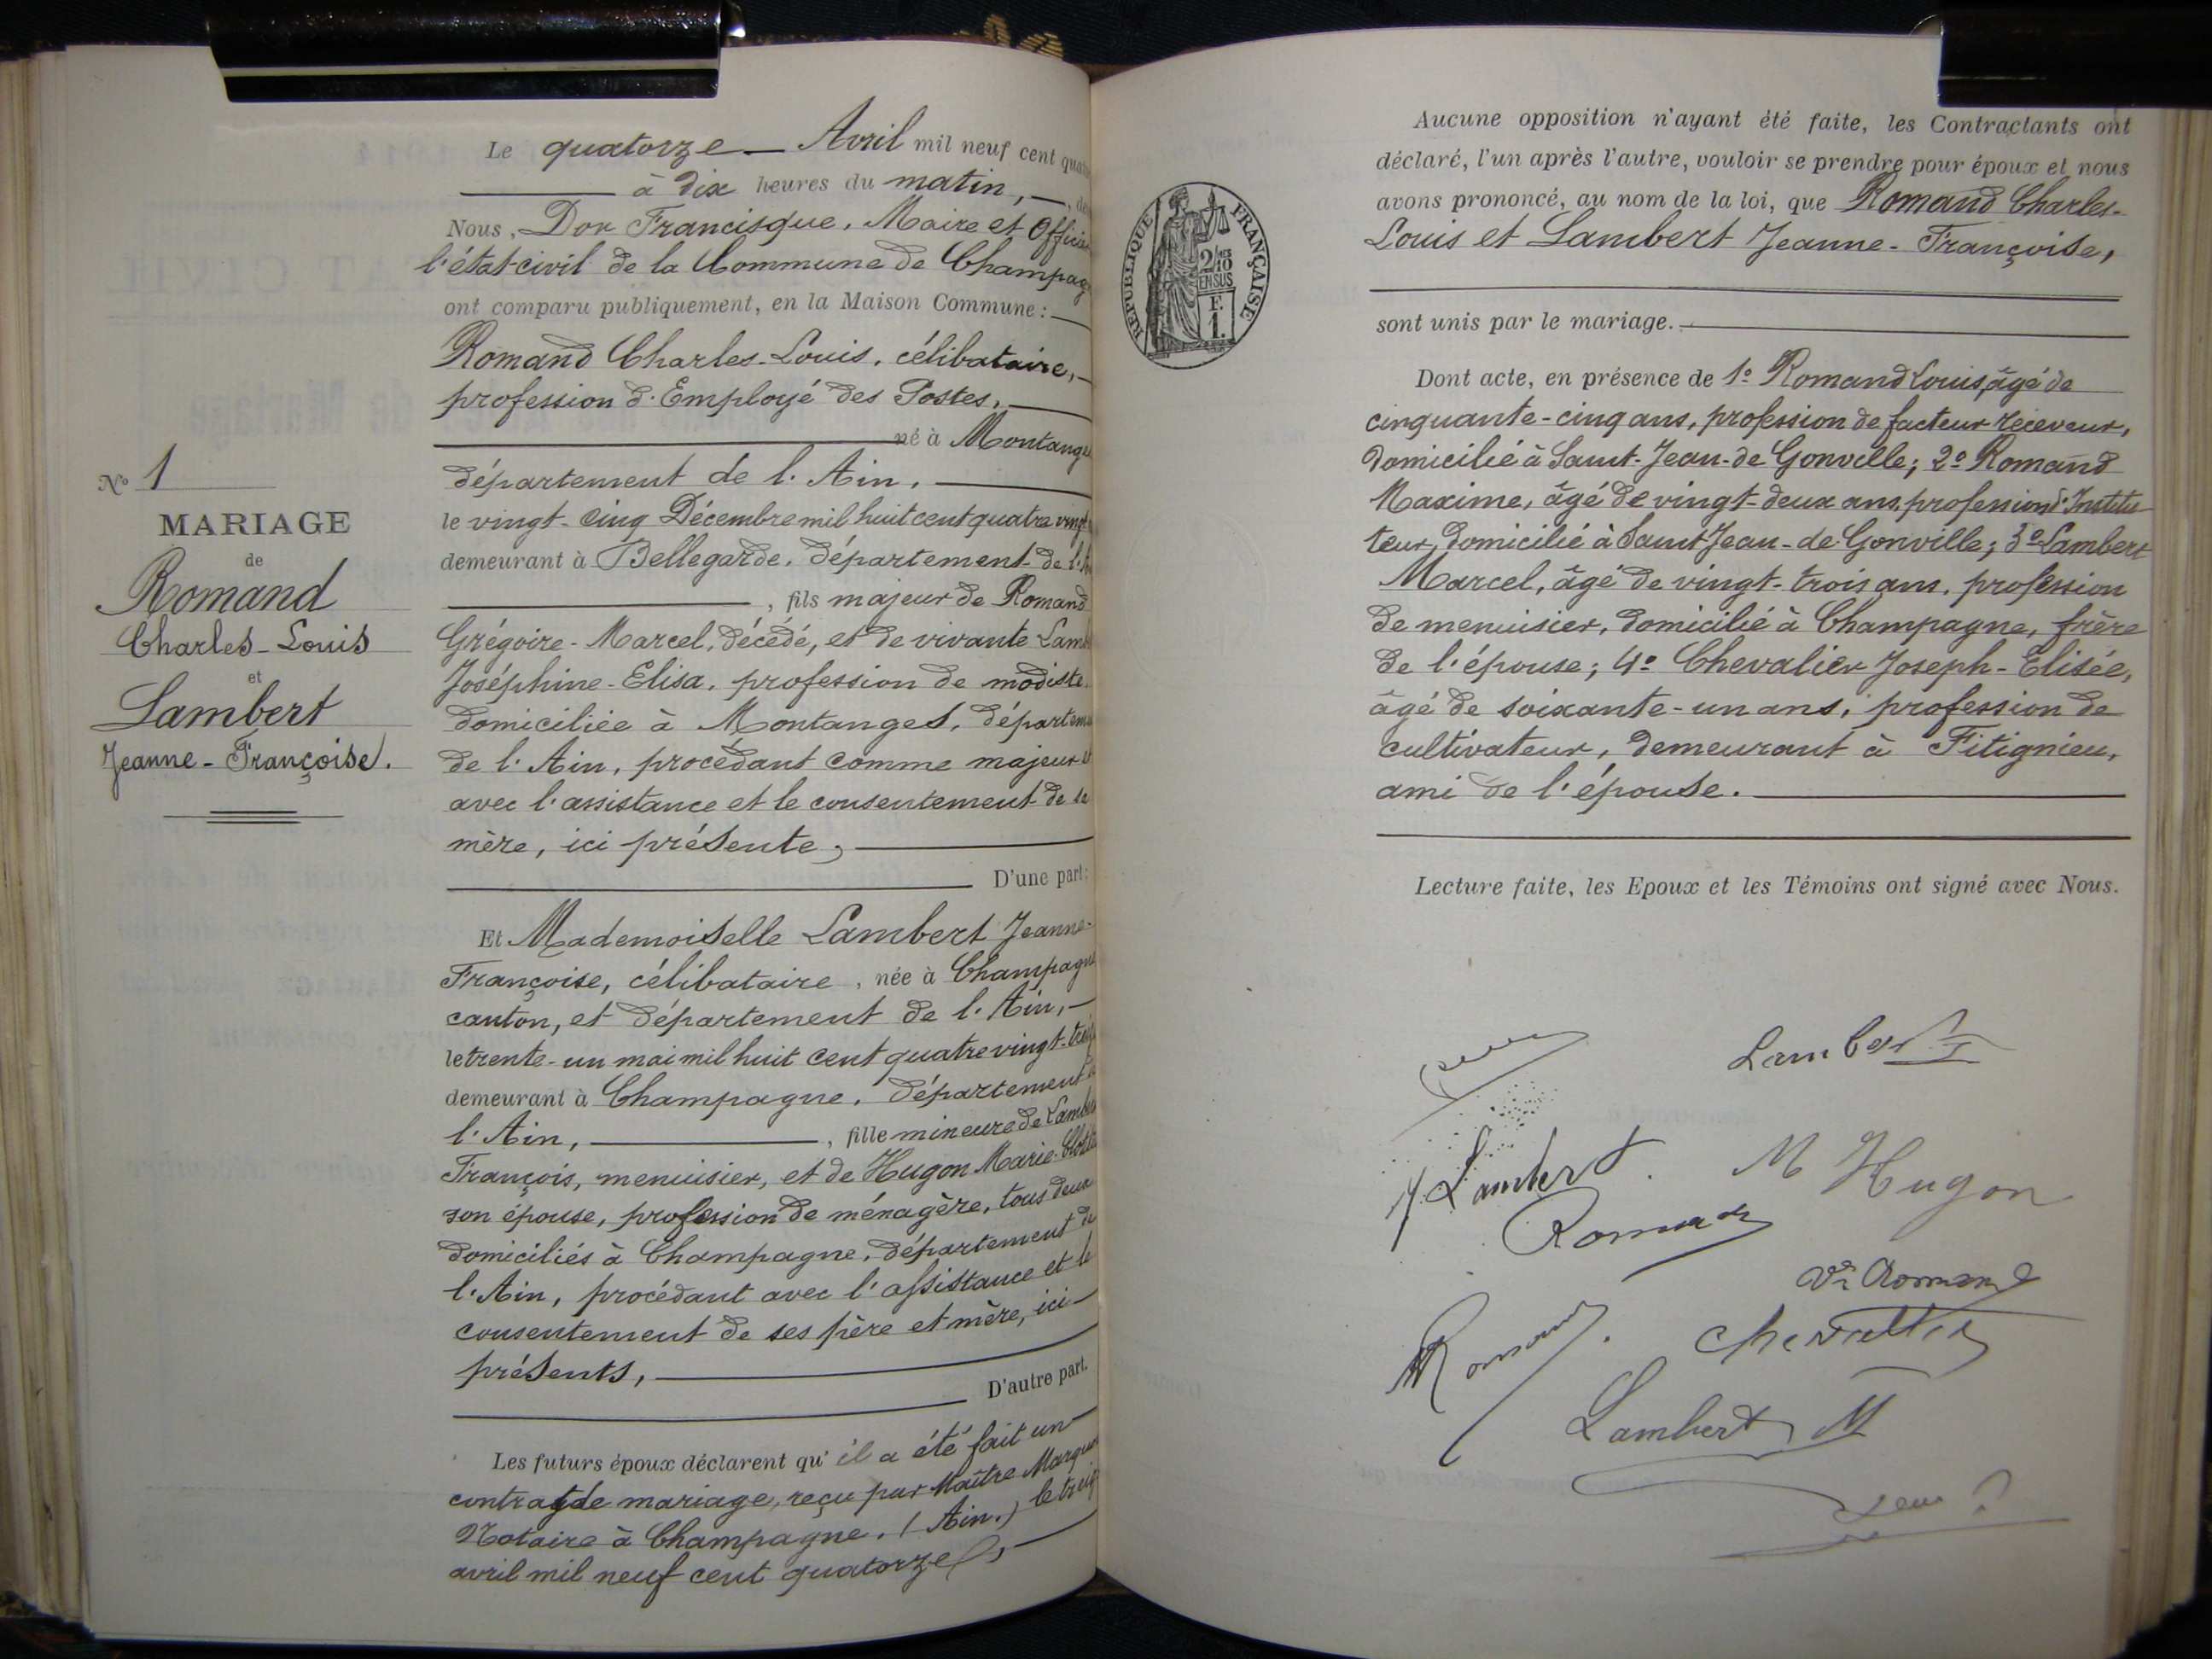 N° 1
MARIAGE
de
Romand
Charles-Louis
et
Lambert
Jeanne-Françoise.
Le quatorze Avril mil neuf cent
à dix heures du matin,
Nous, Dor Francisque, Maire et
l'état-civil de la Commune de
ont comparu publiquement, en la Maison Commune :
Romand Charles-Louis, célibataire,
profession d'Employé des Postes,
né à
département de l'Ain,
le vingt-cinq Décembre mil huit cent quatre
demeurant à Bellegarde, département de
, fils majeur de Romand
Grégoire-Marcel, décédé, et de vivante
Joséphine-Elisa, profession de modiste,
domiciliée à Montanges,
de l'Ain, procédant comme majeur
avec l'assistance et le consentement de
mère, ici présente,
D'une part :
Et Mademoiselle Lambert Jeanne-
Françoise, célibataire, née à
canton, et département de l'Ain,
le trente-un mai mil huit cent quatre vingt
demeurant à Champagne, département
l'Ain, , fille mineure de
François, menuisier, et de Hugon Marie
son épouse, profession de ménagère, tous deux
domiciliés à Champagne, département de
l'Ain, procédant avec l'assistance et le
consentement de ses père et mère, ici
présents,
D'autre part.
Les futurs époux déclarent qu'il a été fait un
contrat de mariage, reçu par Maître
Notaire à Champagne, (Ain.) le
avril mil neuf cent quatorze,
RÉPUBLIQUE FRANÇAISE
2/10 EN SUS
F.
1.
Aucune opposition n'ayant été faite, les Contractants ont
déclaré, l'un après l'autre, vouloir se prendre pour époux et nous
avons prononcé, au nom de la loi, que Romand Charles-
Louis et Lambert Jeanne-Françoise,
sont unis par le mariage.
Dont acte, en présence de 1° Romand Louis, âgé de
cinquante-cinq ans, profession de facteur receveur,
domicilié à Saint-Jean-de Gonville; 2° Romand
Maxime, âgé de vingt-deux ans, profession d'Institu-
teur, domicilié à Saint Jean-de Gonville; 3° Lambert
Marcel, âgé de vingt-trois ans, profession
de menuisier, domicilié à Champagne, frère
de l'épouse; 4° Chevalier Joseph-Elisée,
âgé de soixante-un ans, profession de
cultivateur, demeurant à Fitignieu,
ami de l'épouse.
Lecture faite, les Epoux et les Témoins ont signé avec Nous.
Lambert
J. Lambert. M Hugon
Romand
Vve Romand
Romand. Chevallier
Lambert M